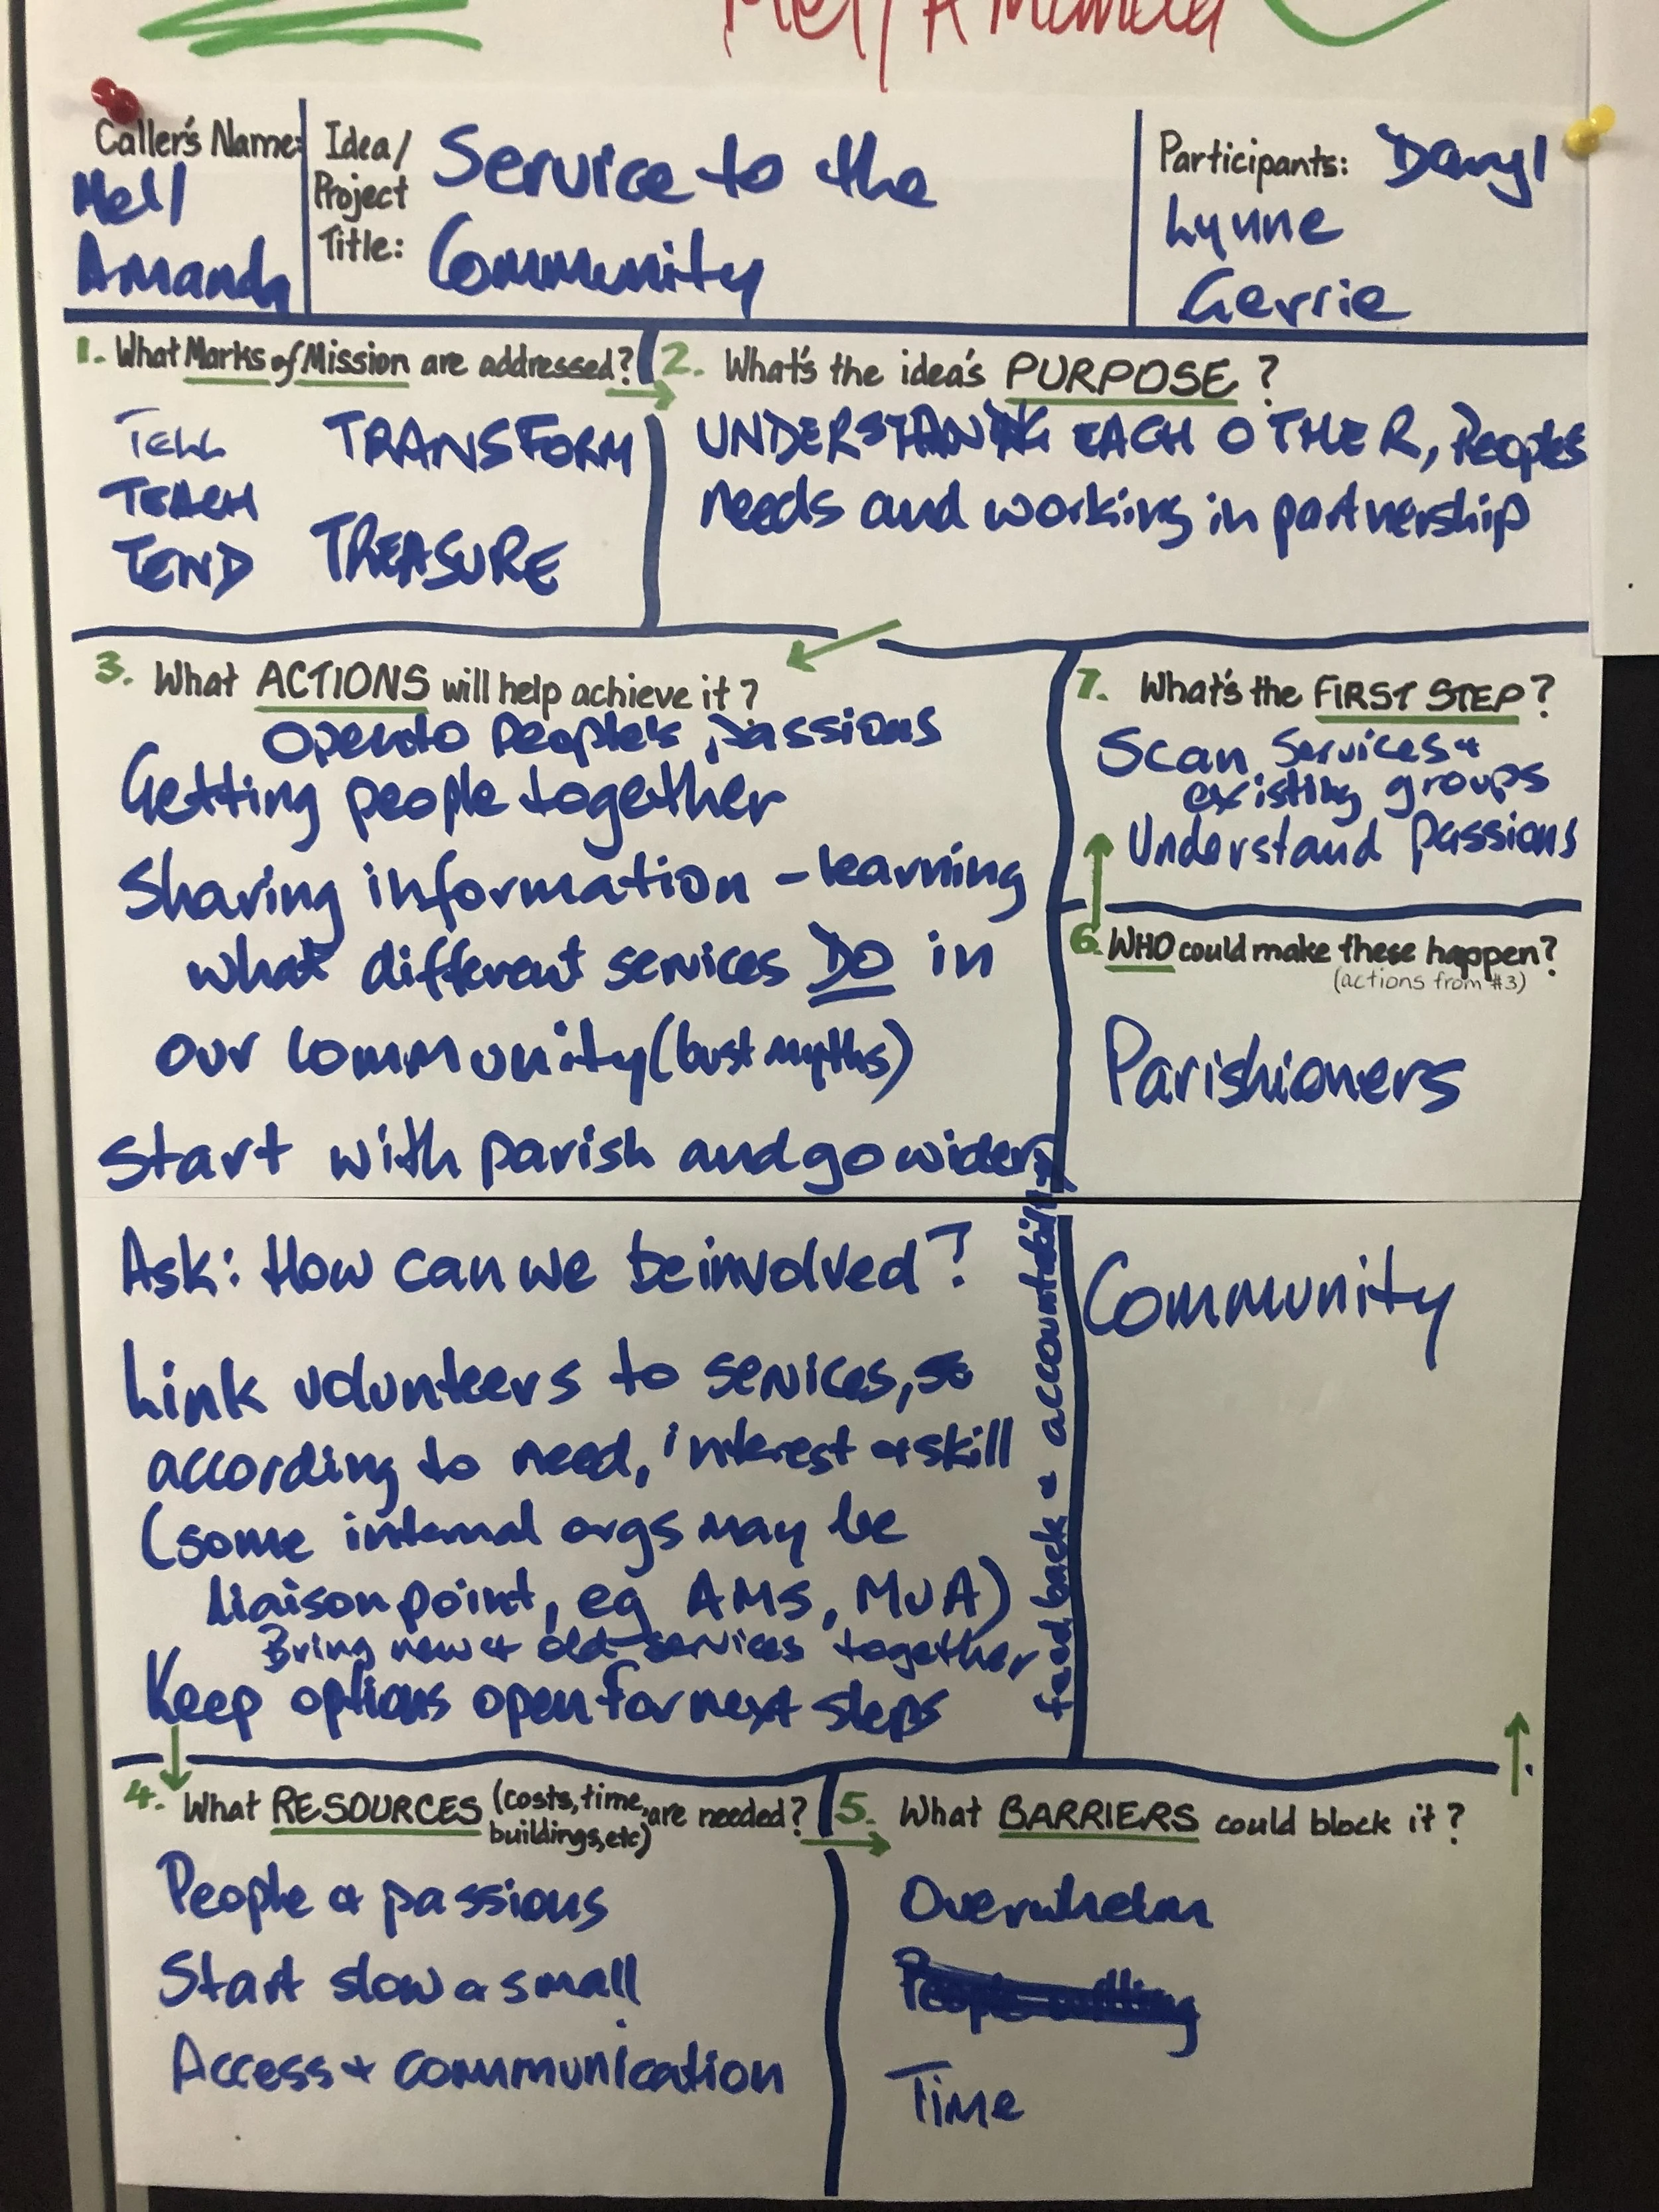 Mell Amanda
Caller's Name:
Mell
Amanda
Idea/
Project
Title:
Service to the
Community
Participants: Daryl
Lynne
Gerrie
1. What Marks of Mission are addressed?
TELL
TEACH
TEND
TRANSFORM
TREASURE
2. What's the idea's PURPOSE?
UNDERSTANDING EACH OTHER, People's
needs and working in partnership
3. What ACTIONS will help achieve it?
Open to people's passions
Getting people together
Sharing information - learning
what different services DO in
our community (bust myths)
Start with parish and go wider
Ask: How can we be involved?
Link volunteers to services, so
according to need, interest & skill
(some internal orgs may be
liaison point, eg AMS, MUA)
Bring new & old services together
Keep options open for next steps
feedback & accountability
4. What RESOURCES (costs, time, are needed?
buildings, etc)
People & passions
Start slow & small
Access & communication
5. What BARRIERS could block it?
Overwhelm
Time
6. WHO could make these happen?
(actions from #3)
Parishioners
Community
7. What's the FIRST STEP?
Scan Services &
existing groups
Understand passions